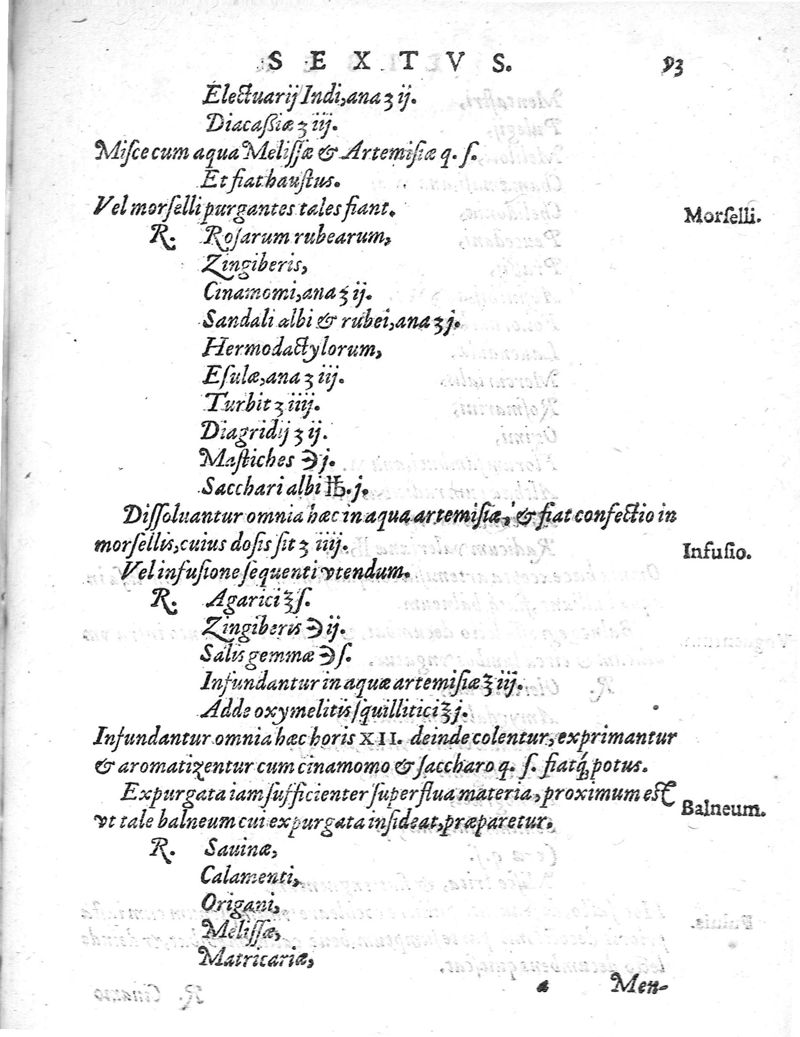 SEXTVS. 93
Electuarij Indi, ana ʒ ij.
Diacaßiæ ʒ iij.
Misce cum aqua Melissæ & Artemisiæ q. ſ.
Et fiat hauſtus.
Vel morſelli purgantes tales fiant.
Morſelli.
R. Roſarum rubearum,
Zingiberis,
Cinamomi, ana ʒ ij.
Sandali albi & rubei, ana ʒ j.
Hermodactylorum,
Eſulæ, ana ʒ iij.
Turbit ʒ iiij.
Diagridij ʒ ij.
Maſtiches ℈ j.
Sacchari albi ℔. j.
Diſſoluantur omnia hæc in aqua artemiſiæ, & fiat confectio in
morſellis, cuius doſis ſit ʒ iiij.
Infuſio.
Vel infuſione ſequenti vtendum.
R. Agarici ʒ ſ.
Zingiberis ℈ ij.
Salis gemmæ ℈ ſ.
Infundantur in aquæ artemiſiæ ℥ iij.
Adde oxymelitis ſquillitici ℥ j.
Infundantur omnia hæc horis XII. deinde colentur, exprimantur
& aromatizentur cum cinamomo & ſaccharo q. ſ. fiatq́; potus.
Expurgata iam ſufficienter ſuperflua materia, proximum eſt
Balneum.
vt tale balneum cui expurgata inſideat, præparetur.
R. Sauinæ,
Calamenti,
Origani,
Meliſſæ,
Matricariæ,
a Men-